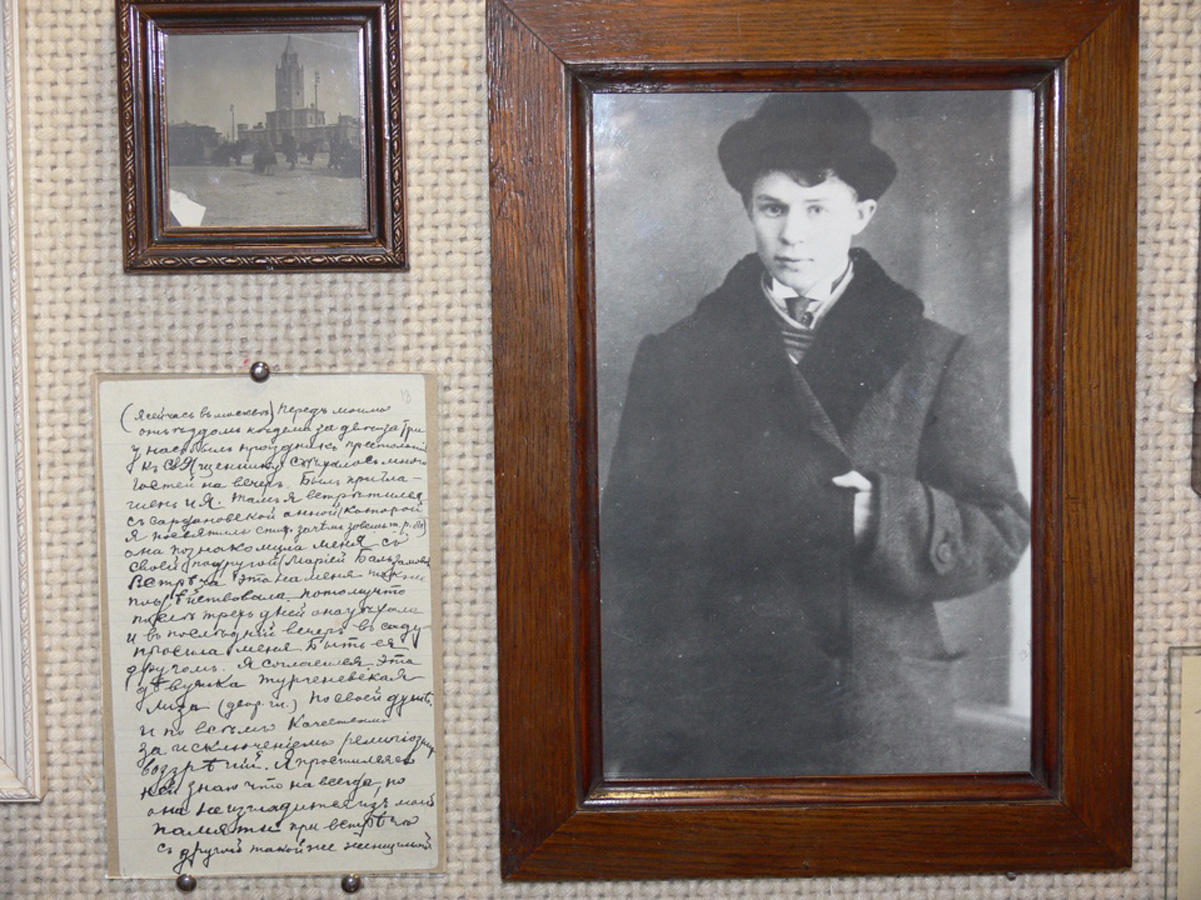 18
(Я сейчасъ въ москвѣ) Передъ моимъ
отъѣздомъ недели за двѣ за три
у насъ былъ праздникъ престольный
къ священнику съѣхалось много
гостей на вечеръ. Былъ пригла-
шенъ и Я. Тамъ я встрѣтился
съ сардановской анной (которой
Я посвятилъ стих. зачѣмъ зовешь т. р. м.)
она познакомила меня съ
своей подругой (Маріей Бальзамовой)
Встрѣча эта на меня также
подѣйствовала, потому что
послѣ трехъ дней она уѣхала
и въ послѣдній вечеръ въ саду
просила меня быть ея
другомъ. Я согласился. Эта
дѣвушка тургеневская
Лиза (двор. гн.) По своей душѣ.
и по всѣмъ качествамъ
за исключеніемъ религіозныхъ
воззрѣній. Я простился съ
ней знаю что навсегда, но
она не изгладится изъ моей
памяти при встрѣчѣ
съ другой такой же женщиной